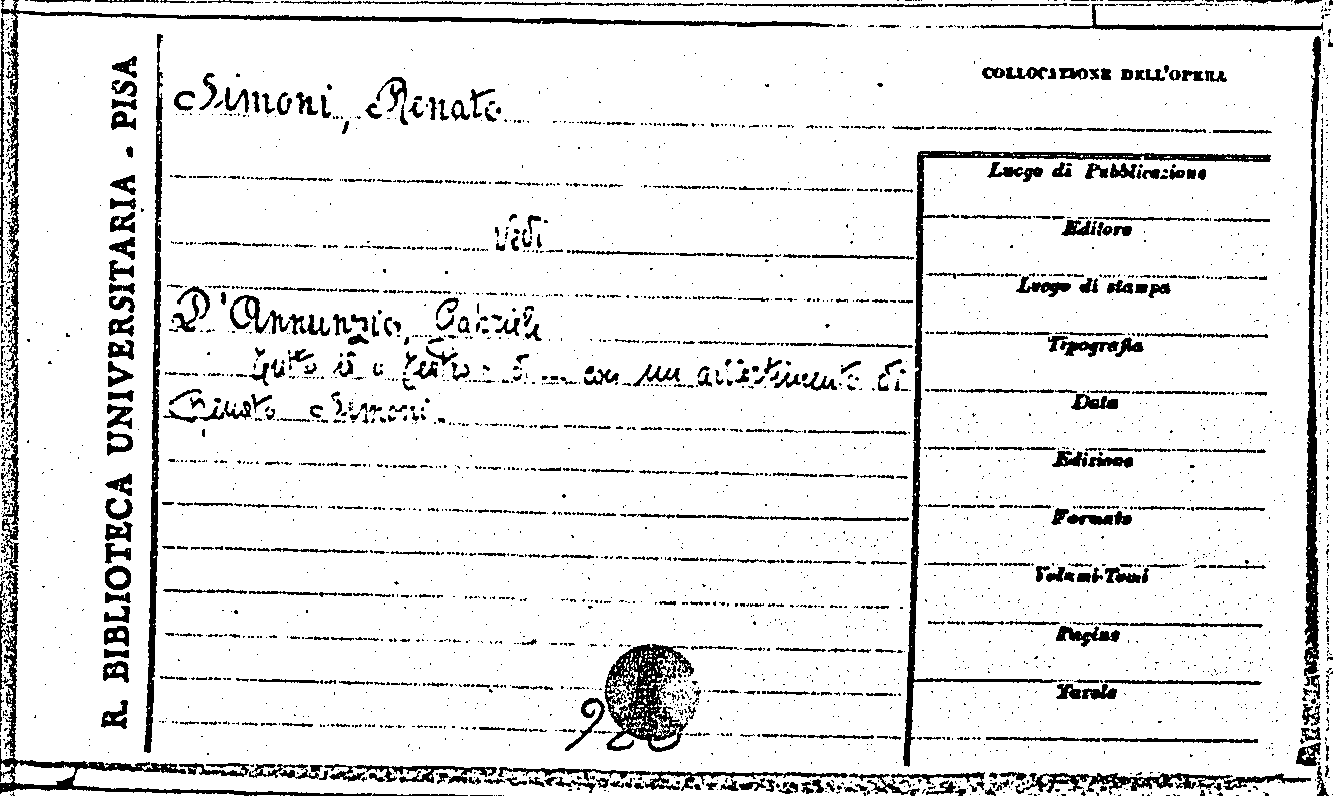 R. BIBLIOTECA UNIVERSITARIA - PISA
COLLOCAZIONE DELL'OPERA
Simoni, Renato
Vedi
D'Annunzio, Gabriele
Tutto il teatro di ... con un avvertimento di
Renato Simoni.
Luogo di Pubblicazione
Editore
Luogo di stampa
Tipografia
Data
Edizione
Formato
Volumi-Tomi
Pagine
Tavole